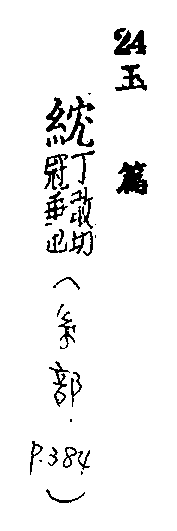 24玉篇
紞丁敢切
冠垂也
(糸部.P.384)